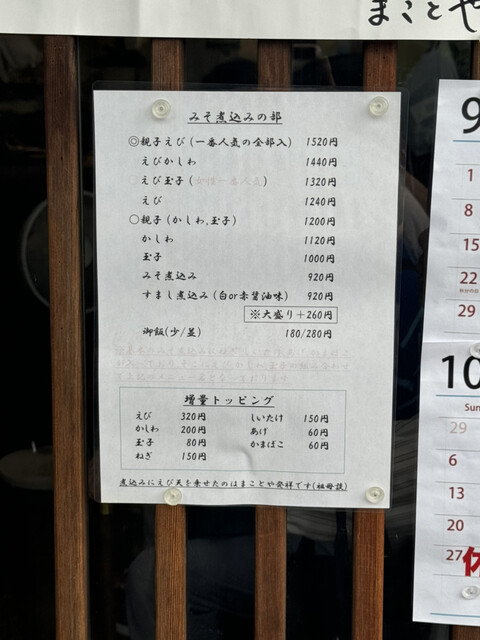 まことや
みそ煮込みの部
◎親子えび(一番人気の全部入) 1520円
えびかしわ 1440円
えび玉子(女性一番人気) 1320円
えび 1240円
〇親子(かしわ,玉子) 1200円
かしわ 1120円
玉子 1000円
みそ煮込み 920円
すまし煮込み(白or赤醤油味) 920円
※大盛り+260円
御飯(少/並) 180/280円
増量トッピング
えび 320円 しいたけ 150円
かしわ 200円 あげ 60円
玉子 80円 かまぼこ 60円
ねぎ 150円
煮込みにえび天を乗せたのはまことや発祥です(祖母談)
9
1
8
15
22
29
10
Sun
29
6
13
20
27